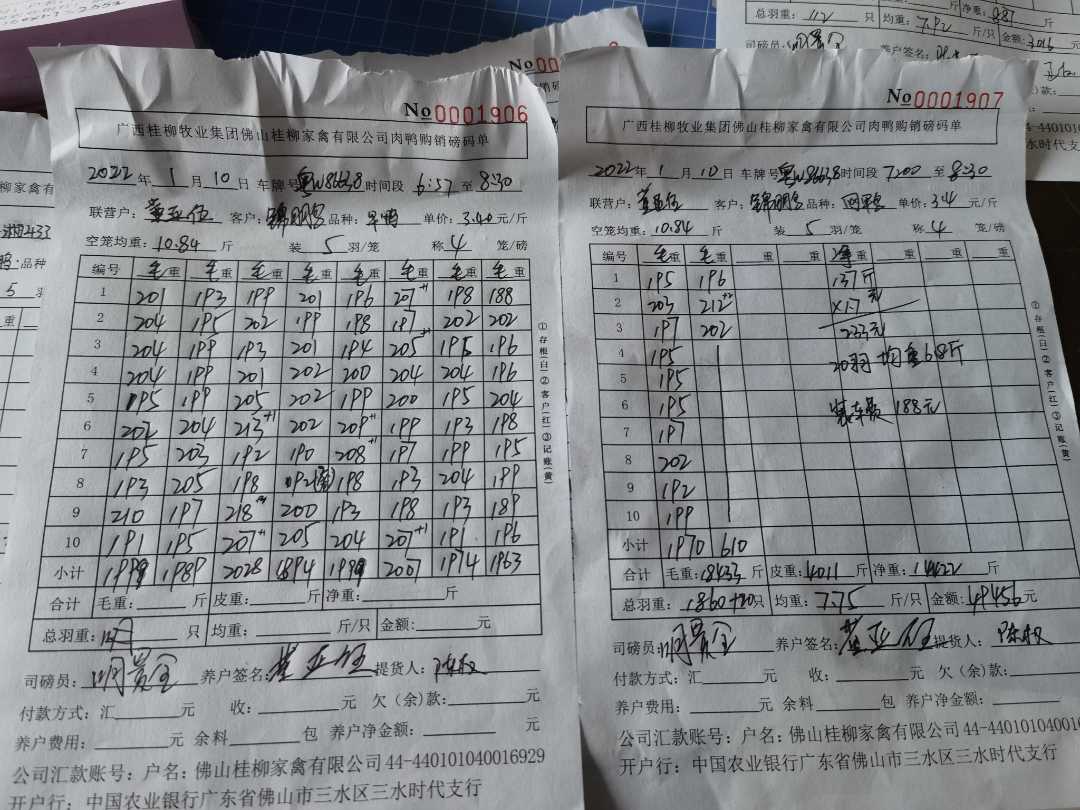 No 0001906
广西桂柳牧业集团佛山桂柳家禽有限公司肉鸭购销磅码单
2022年 1月 10日 车牌号 粤W86638 时间段 6:57 至 8:30
联营户: 客户: 锦明 品种: 单价: 3.40元/斤
空笼均重: 10.84 斤 装 5 羽/笼 称 4 笼/磅
编号 毛重 毛重 毛重 毛重 毛重 毛重 毛重 毛重
1 201 193 199 201 196 207+1 198 188
2 204 195 202 199 198 197 202 202
3 204 199 193 201 194 205+1 195 196
4 204 199 201 202 200 204 204 196
5 195 199 205 202 199 200 195 204
6 202 204 213+1 202 209+1 199 193 198
7 195 203 192 190 208+1 197 199 195
8 193 205 198 192 198 193 204 199
9 210 197 218 200 193 198 193 189
10 191 195 207+1 205 204 207+1 191 196
小计 1999 1989 2028 1994 1999 2007 1974 1963
合计 毛重: 斤 皮重: 斤 净重: 斤
总羽重: 只 均重: 斤/只 金额: 元
司磅员: 养户签名: 董亚伍 提货人: 陈权
付款方式: 汇 元 收: 元 欠(余)款: 元
养户费用: 元 余料 包 养户净金额: 元
公司汇款账号: 户名: 佛山桂柳家禽有限公司 44-440101040016929
开户行: 中国农业银行广东省佛山市三水区三水时代支行
①存根(白)②客户(红)③记账(黄)
No 0001907
广西桂柳牧业集团佛山桂柳家禽有限公司肉鸭购销磅码单
2022年 1月 10日 车牌号 粤W86638 时间段 7:00 至 8:30
联营户: 客户: 锦明 品种: 单价: 3.4 元/斤
空笼均重: 10.84 斤 装 5 羽/笼 称 4 笼/磅
编号 毛重 毛重 重 重 净重 重 重 重
1 195 196 137斤
2 203 212+2 X1.7元
3 197 202 233元
4 195 20羽 均重6.8斤
5 195
6 195 装车费 188元
7 197
8 202
9 192
10 199
小计 1970 610
合计 毛重: 18433 斤 皮重: 4011 斤 净重: 14422 斤
总羽重: 1860+20只 均重: 7.75 斤/只 金额: 49456元
司磅员: 养户签名: 董亚伍 提货人: 陈权
付款方式: 汇 元 收: 元 欠(余)款: 元
养户费用: 元 余料 包 养户净金额: 元
公司汇款账号: 户名: 佛山桂柳家禽有限公司 44-440101040016
开户行: 中国农业银行广东省佛山市三水区三水时代支行
①存根(白)②客户(红)③记账(黄)
总羽重: 112 只 均重: 7.92 斤/只 金额: 3016 元